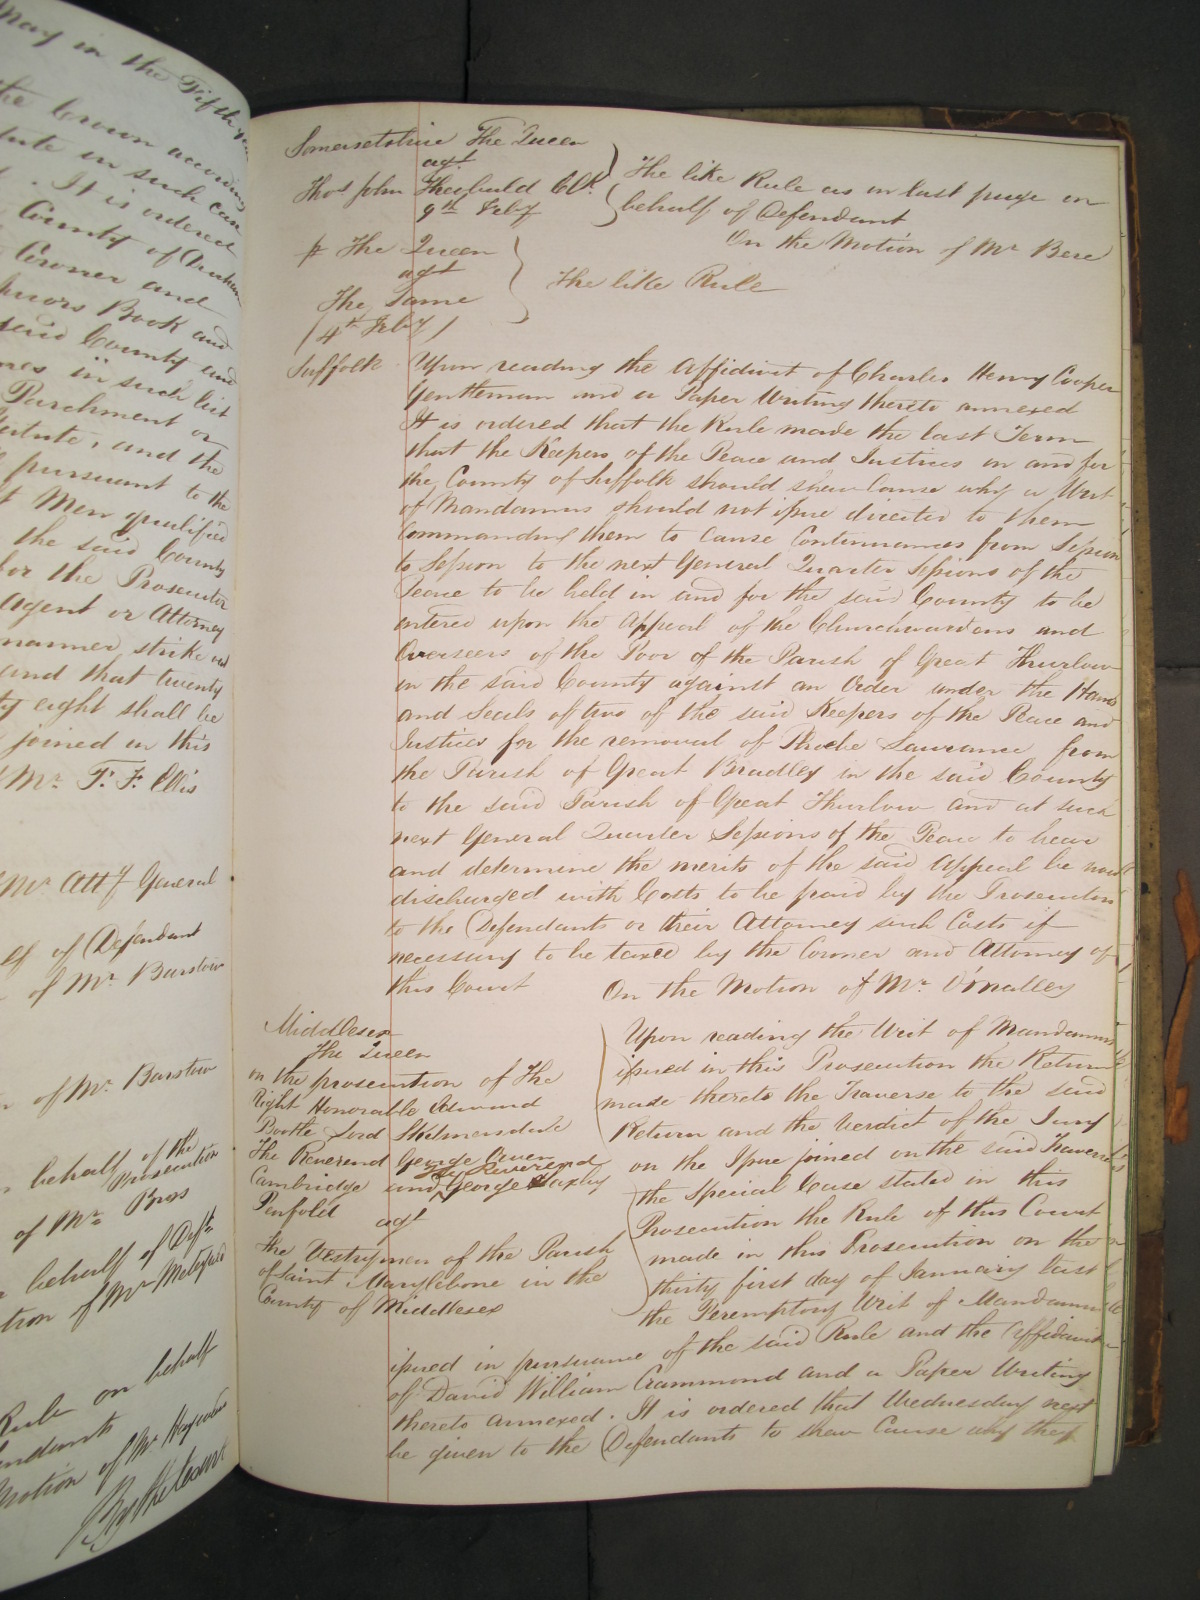 May in the Fifth year
the Crown according
Statute in such case
It is ordered
County of Durham
Coroner and
Jurors Book and
said County and
names in such list
Parchment or
Statute, and the
pursuant to the
Men qualified
the said County
for the Prosecutor
Agent or Attorney
manner strike out
and that twenty
eight shall be
joined in this
Mr. T. F. Ellis
Mr. Atty General
of Defendant
of Mr. Barstow
of Mr. Barstow
behalf of the
Prosecution
of Mr. Bros
behalf of Deft.
of Mr. Metcalfe
Rule on behalf
Motion of Mr. Haywood
By the Court
Somersetshire The Queen
agt
Thos John Theobald Clk.
9th Feby
The like Rule as in last page on
behalf of Defendant
On the Motion of Mr. Bere
The Queen
agt
The Same
(4th Feby)
The like Rule
Suffolk
Upon reading the Affidavit of Charles Henry Cooper
Gentleman and a Paper Writing thereto annexed
It is ordered that the Rule made the last Term
that the Keepers of the Peace and Justices in and for
the County of Suffolk should shew Cause why a Writ
of Mandamus should not issue directed to them
Commanding them to cause Continuances from Session
to Session to the next General Quarter Sessions of the
Peace to be held in and for the said County to be
entered upon the Appeal of the Churchwardens and
Overseers of the Poor of the Parish of Great Thurlow
in the said County against an Order under the Hands
and Seals of two of the said Keepers of the Peace and
Justices for the removal of Phoebe Laurance from
the Parish of Great Bradley in the said County
to the said Parish of Great Thurlow and at such
next General Quarter Sessions of the Peace to hear
and determine the merits of the said Appeal be now
discharged with Costs to be paid by the Prosecutors
to the Defendants or their Attorney such Costs if
necessary to be taxed by the Coroner and Attorney of
this Court
On the Motion of Mr. O'Malley
Middlesex
The Queen
on the prosecution of The
Right Honorable Edmund
Bootle Lord Skelmersdale
The Reverend George Owen
Cambridge and The Reverend George Saxby
Penfold
agt
The Vestrymen of the Parish
of Saint Marylebone in the
County of Middlesex
Upon reading the Writ of Mandamus
issued in this Prosecution the Return
made thereto the Traverse to the said
Return and the Verdict of the Jury
on the Issue joined on the said Traverse
the Special Case stated in this
Prosecution the Rule of this Court
made in this Prosecution on the
thirty first day of January last
the Peremptory Writ of Mandamus
issued in pursuance of the said Rule and the Affidavit
of David William Crammond and a Paper Writing
thereto annexed. It is ordered that Wednesday next
be given to the Defendants to shew Cause why they